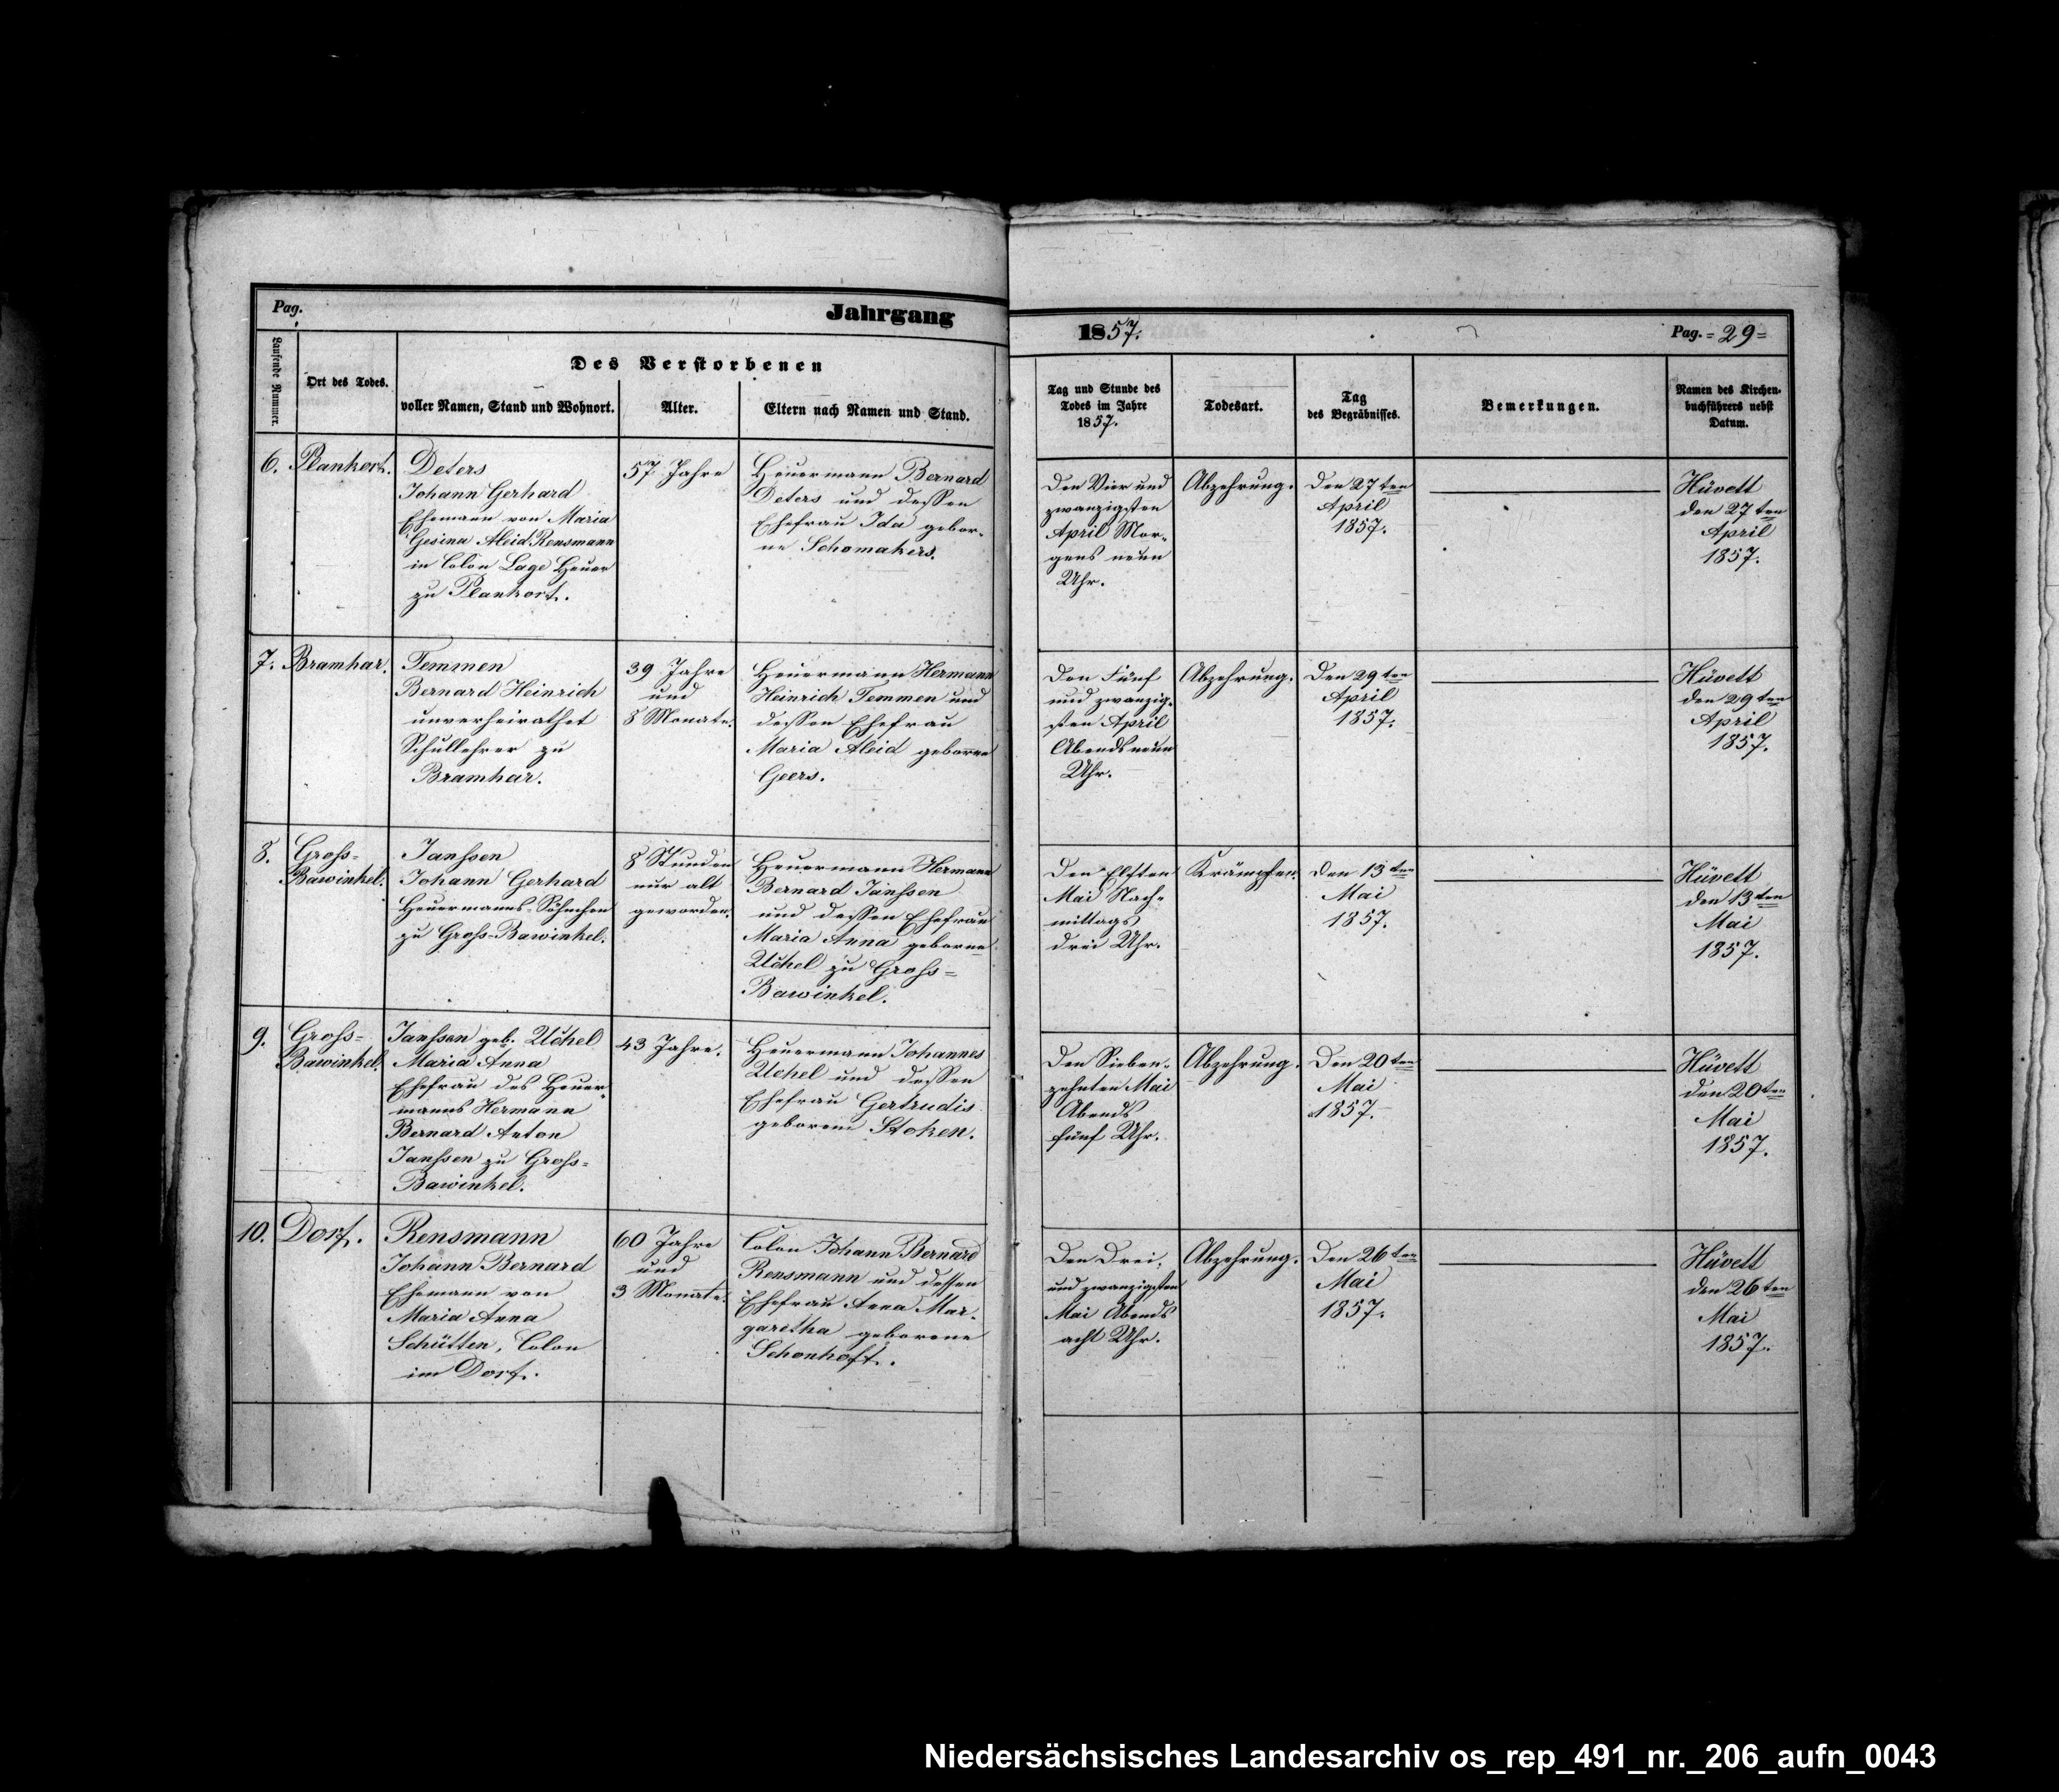 Pag.
Jahrgang
1857.
Pag. = 29 =
Laufende Nummer.
Ort des Todes.
Des Verstorbenen
voller Namen, Stand und Wohnort.
Alter.
Eltern nach Namen und Stand.
Tag und Stunde des
Todes im Jahre
1857.
Todesart.
Tag
des Begräbnisses.
Bemerkungen.
Namen des Kirchen-
buchführers nebst
Datum.
6.
Plankort.
Deters
Johann Gerhard
Ehemann von Maria
Gesina Aleid Rensmann
in Colon Lage Heuer
zu Plankort.
57 Jahre
Heuermann Bernard
Deters und dessen
Ehefrau Ida gebor-
ne Schomakers.
Den Vier und
zwanzigsten
April Mor-
gens neun
Uhr.
Abzehrung.
Den 27ten
April
1857.
Hüvett
den 27ten
April
1857.
7.
Bramhar.
Temmen
Bernard Heinrich
unverheirathet
Schullehrer zu
Bramhar.
39 Jahre
und
8 Monate.
Heuermann Hermann
Heinrich Temmen und
dessen Ehefrau
Maria Aleid geborne
Geers.
Den Fünf
und zwanzig-
sten April
Abends neun
Uhr.
Abzehrung.
Den 29ten
April
1857.
Hüvett
den 29ten
April
1857.
8.
Gross-
Bawinkel.
Janssen
Johann Gerhard
Heuermanns-Söhnchen
zu Gross-Bawinkel.
8 Stunden
nur alt
geworden.
Heuermann Hermann
Bernard Janssen
und dessen Ehefrau
Maria Anna geborne
Uchel zu Gross-
Bawinkel.
Den Elften
Mai Nach-
mittags
drei Uhr.
Krämpfen.
Den 13ten
Mai
1857.
Hüvett
den 13ten
Mai
1857.
9.
Gross-
Bawinkel.
Janssen geb. Uchel
Maria Anna
Ehefrau des Heuer-
manns Hermann
Bernard Anton
Janssen zu Gross-
Bawinkel.
43 Jahre.
Heuermann Johannes
Uchel und dessen
Ehefrau Gertrudis
geborene Stoken.
Den Sieben-
zehnten Mai
Abends
fünf Uhr.
Abzehrung.
Den 20ten
Mai
1857.
Hüvett
den 20ten
Mai
1857.
10.
Dorf.
Rensmann
Johann Bernard
Ehemann von
Maria Anna
Schütten, Colon
im Dorf.
60 Jahre
und
3 Monate.
Colon Johann Bernard
Rensmann und dessen
Ehefrau Anna Mar-
garetha geborene
Schonhoft.
Den Drei-
und zwanzigsten
Mai Abends
acht Uhr.
Abzehrung.
Den 26ten
Mai
1857.
Hüvett
den 26ten
Mai
1857.
Niedersächsisches Landesarchiv os_rep_491_nr._206_aufn_0043